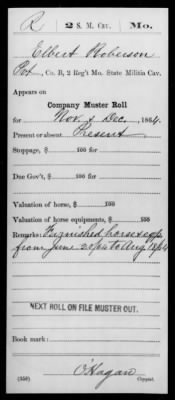 R 2 S. M. Cav. Mo.
Elbert Roberson
Pvt, Co. B, 2 Reg't Mo. State Militia Cav.
Appears on
Company Muster Roll
for Nov. & Dec., 1864.
Present or absent Present
Stoppage, $ 100 for
Due Gov't, $ 100 for
Valuation of horse, $ 100
Valuation of horse equipments, $ 100
Remarks: Furnished horse & eqp
from June 20/64 to Aug 18/64
NEXT ROLL ON FILE MUSTER OUT.
Book mark:
O'Hagan
(356) Copyist.